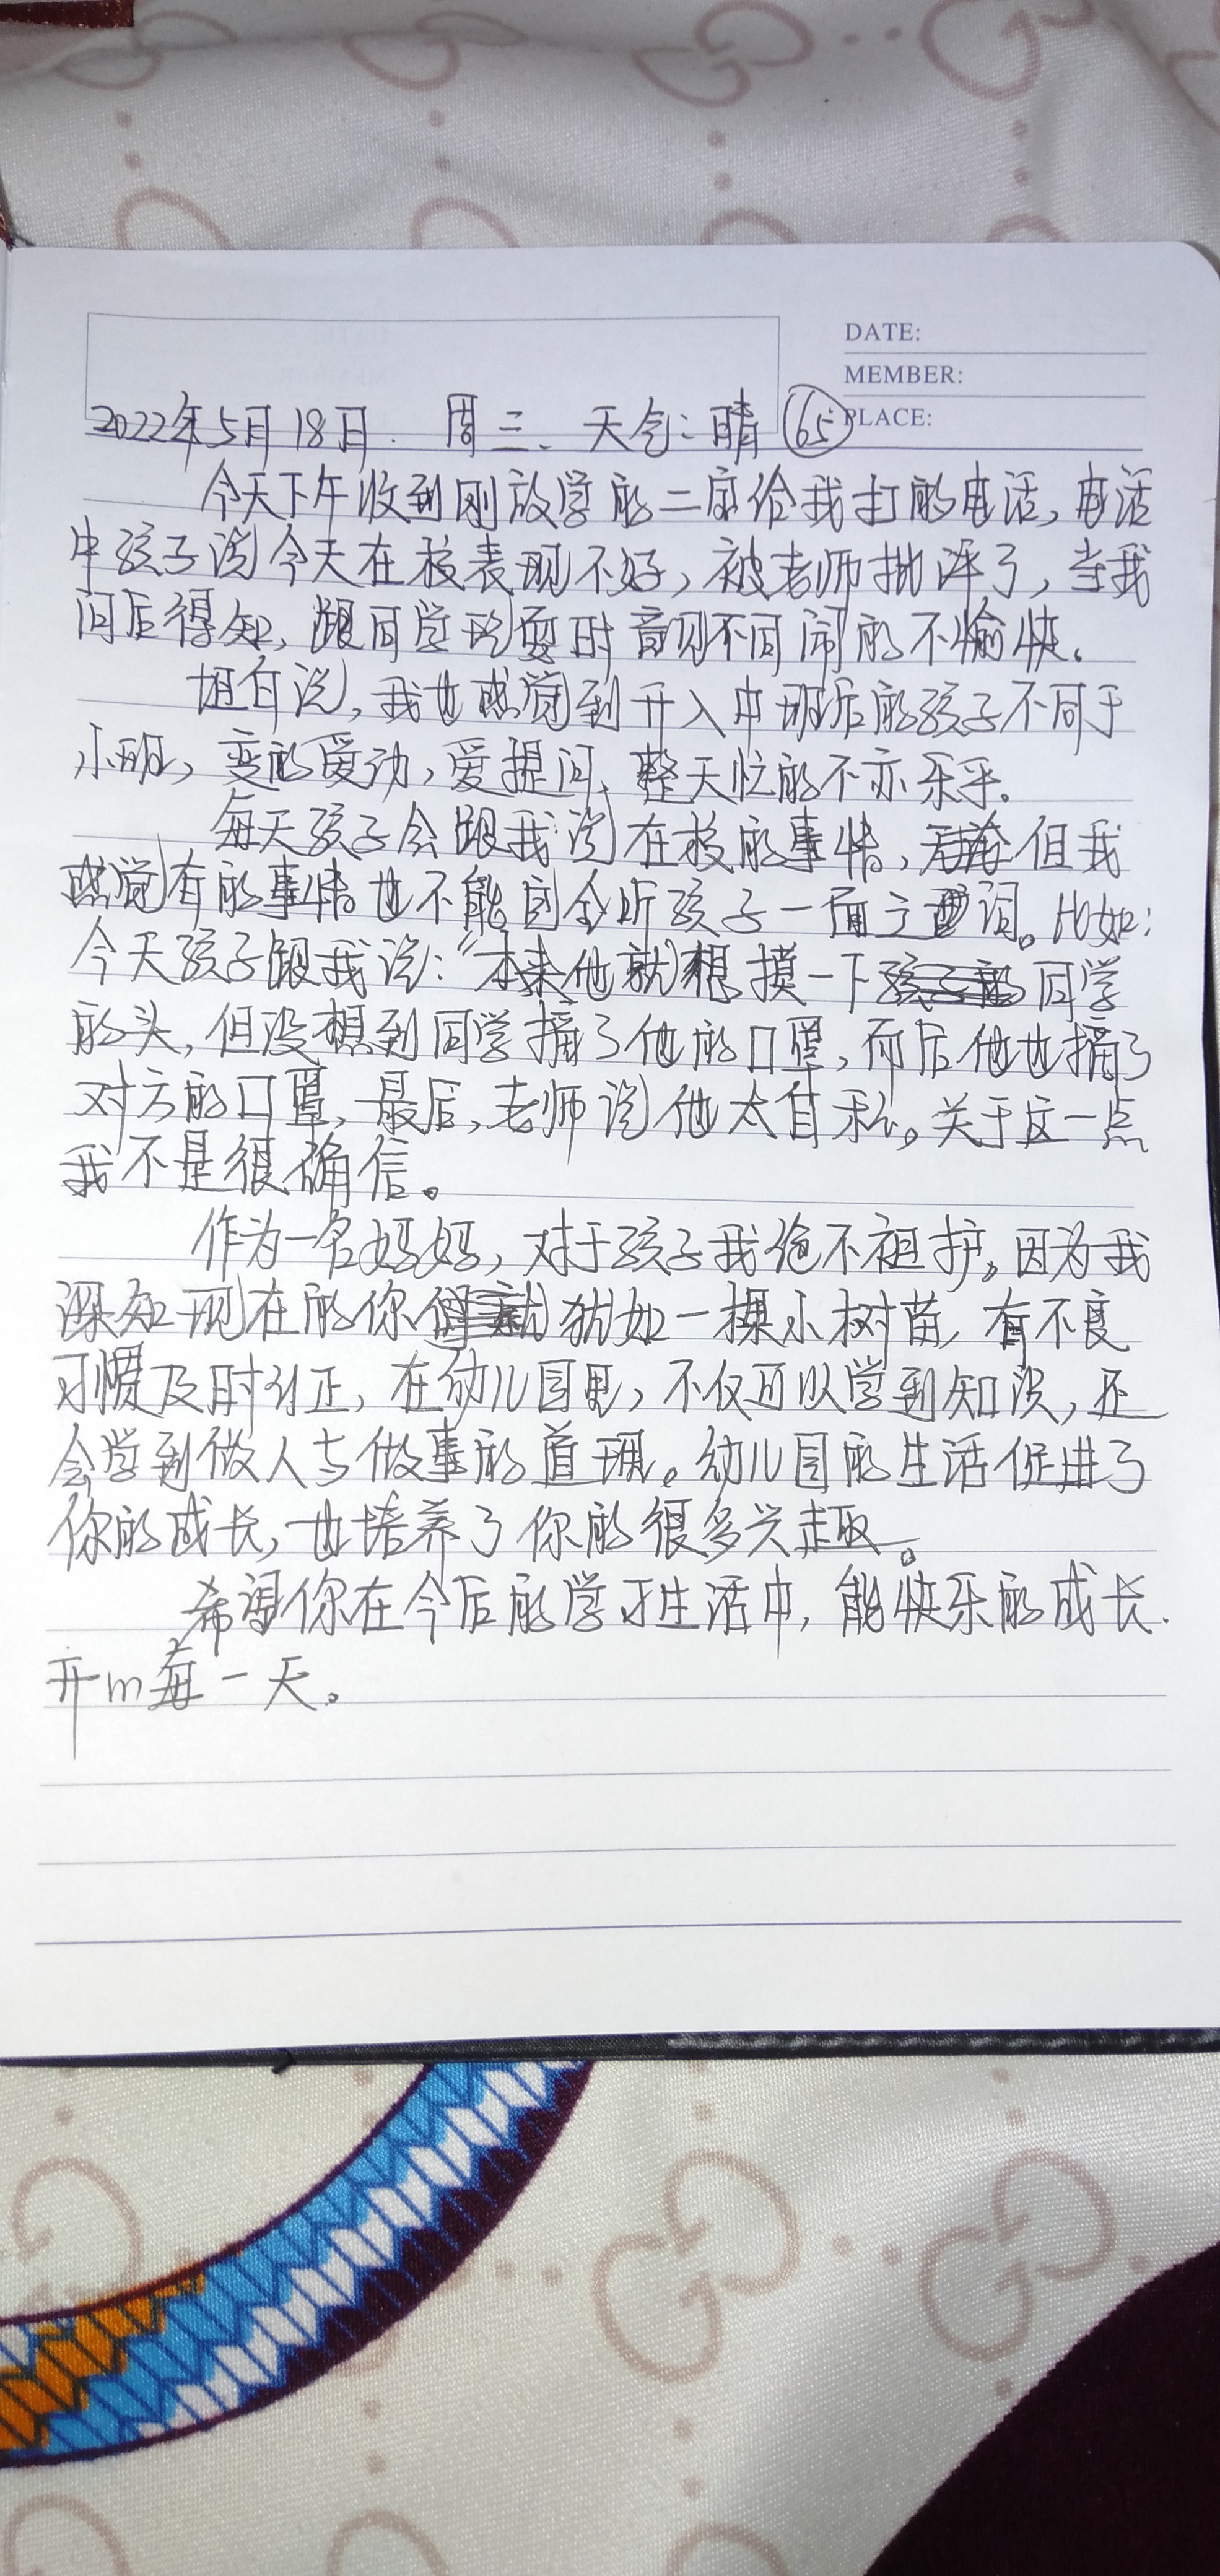 DATE:
MEMBER:
PLACE:
2022年5月18日. 周三、天气:晴 65
今天下午收到刚放学的二宝给我打的电话,电话
中孩子说今天在校表现不好,被老师批评了,当我
问后得知,跟同学玩耍时意见不同闹的不愉快.
坦白说,我也感觉到升入中班后的孩子不同于
小班,变的爱动,爱提问,整天忙的不亦乐乎.
每天孩子会跟我说在校的事情,但我
感觉有的事情也不能完全听孩子一面之词。比如:
今天孩子跟我说:“本来他就想摸一下同学
的头,但没想到同学摘了他的口罩,而后他也摘了
对方的口罩,最后,老师说他太自私。关于这一点
我不是很确信。
作为一名妈妈,对于孩子我绝不袒护。因为我
深知现在的你犹如一棵小树苗,有不良
习惯及时纠正,在幼儿园里,不仅可以学到知识,还
会学到做人与做事的道理。幼儿园的生活促进了
你的成长,也培养了你的很多兴趣。
希望你在今后的学习生活中,能快乐的成长.
开心每一天。